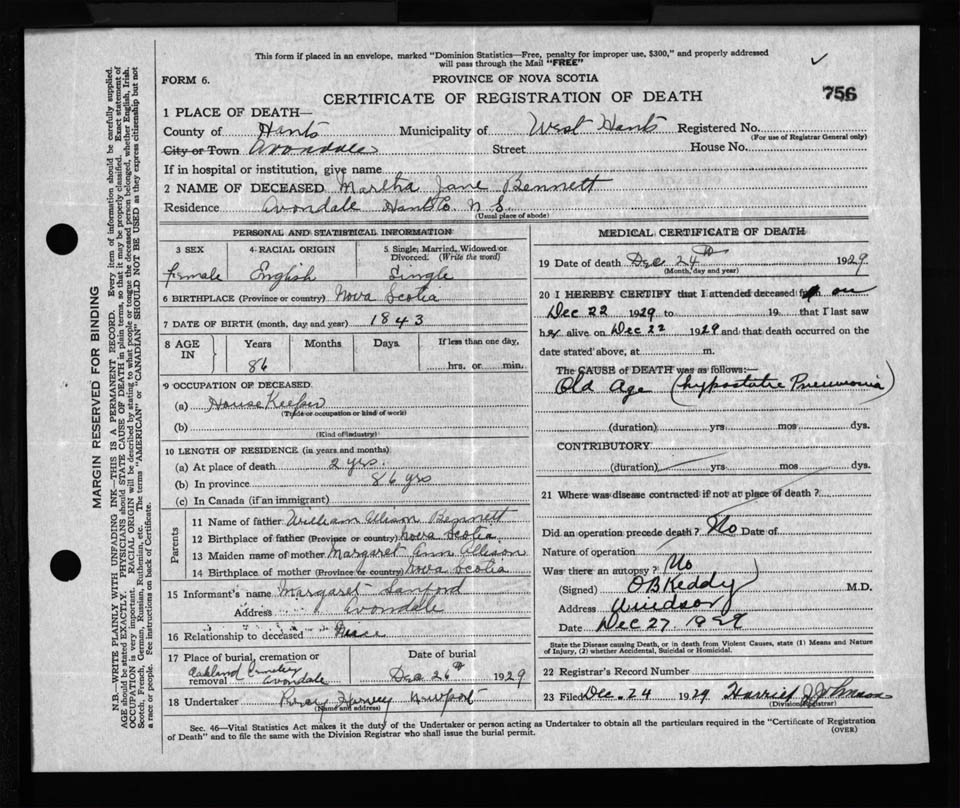 This form if placed in an envelope, marked "Dominion Statistics—Free, penalty for improper use, $300," and properly addressed
will pass through the Mail "FREE"
FORM 6.
PROVINCE OF NOVA SCOTIA
CERTIFICATE OF REGISTRATION OF DEATH
756
1 PLACE OF DEATH—
County of Hants Municipality of West Hants Registered No.
(For use of Registrar General only)
City or Town Avondale Street House No.
If in hospital or institution, give name
2 NAME OF DECEASED Martha Jane Bennett
Residence Avondale Hants Co. N.S.
(Usual place of abode)
PERSONAL AND STATISTICAL INFORMATION
3 SEX 4 RACIAL ORIGIN 5 Single, Married, Widowed or
Divorced. (Write the word)
female English Single
6 BIRTHPLACE (Province or country) Nova Scotia
7 DATE OF BIRTH (month, day and year) 1843
8 AGE IN Years Months Days If less than one day,
86 hrs. or min.
9 OCCUPATION OF DECEASED
(a) House Keeper
(Trade occupation or kind of work)
(b)
(Kind of industry)
10 LENGTH OF RESIDENCE (in years and months)
(a) At place of death 2 yrs.
(b) In province 86 yrs
(c) In Canada (if an immigrant)
Parents
11 Name of father William Allison Bennett
12 Birthplace of father (Province or country) Nova Scotia
13 Maiden name of mother Margaret Ann Allison
14 Birthplace of mother (Province or country) Nova Scotia
15 Informant's name Margaret Sanford
Address Avondale
16 Relationship to deceased Niece
17 Place of burial, cremation or Date of burial
removal Oakland Cemetery Avondale Dec 26th 1929
18 Undertaker Percy Harvey Newport
(Name and address)
MEDICAL CERTIFICATE OF DEATH
19 Date of death Dec 24th 1929
(Month, day and year)
20 I HEREBY CERTIFY that I attended deceased on
Dec 22 1929 to 19 that I last saw
her alive on Dec 22 1929 and that death occurred on the
date stated above, at m.
The CAUSE of DEATH was as follows:
Old Age (hypostatic Pneumonia)
(duration) yrs mos dys.
CONTRIBUTORY
(duration) yrs mos dys.
21 Where was disease contracted if not at place of death?
Did an operation precede death? No Date of
Nature of operation
Was there an autopsy? No
(Signed) O B Keddy M.D.
Address Windsor
Date Dec 27 1929
State the Disease causing Death, or in death from Violent Causes, state (1) Means and Nature
of Injury, (2) whether Accidental, Suicidal or Homicidal.
22 Registrar's Record Number
23 Filed Dec. 24 1929 Harried J Johnson
(Division Registrar)
Sec. 46—Vital Statistics Act makes it the duty of the Undertaker or person acting as Undertaker to obtain all the particulars required in the "Certificate of Registration
of Death" and to file the same with the Division Registrar who shall issue the burial permit.
(OVER)
MARGIN RESERVED FOR BINDING
N.B.—WRITE PLAINLY WITH UNFADING INK—THIS IS A PERMANENT RECORD. Every item of information should be carefully supplied.
AGE should be stated EXACTLY. PHYSICIANS should STATE CAUSE OF DEATH in plain terms, so that it may be properly classified. Exact statement of
OCCUPATION is very important. RACIAL ORIGIN will be described by stating to what people or tongue the deceased person belonged, whether English, Irish,
Scotch, French, German, Russian, Ruthenian, etc. The terms "AMERICAN" or "CANADIAN" SHOULD NOT BE USED as they express citizenship but not
a race or people. See instructions on back of Certificate.